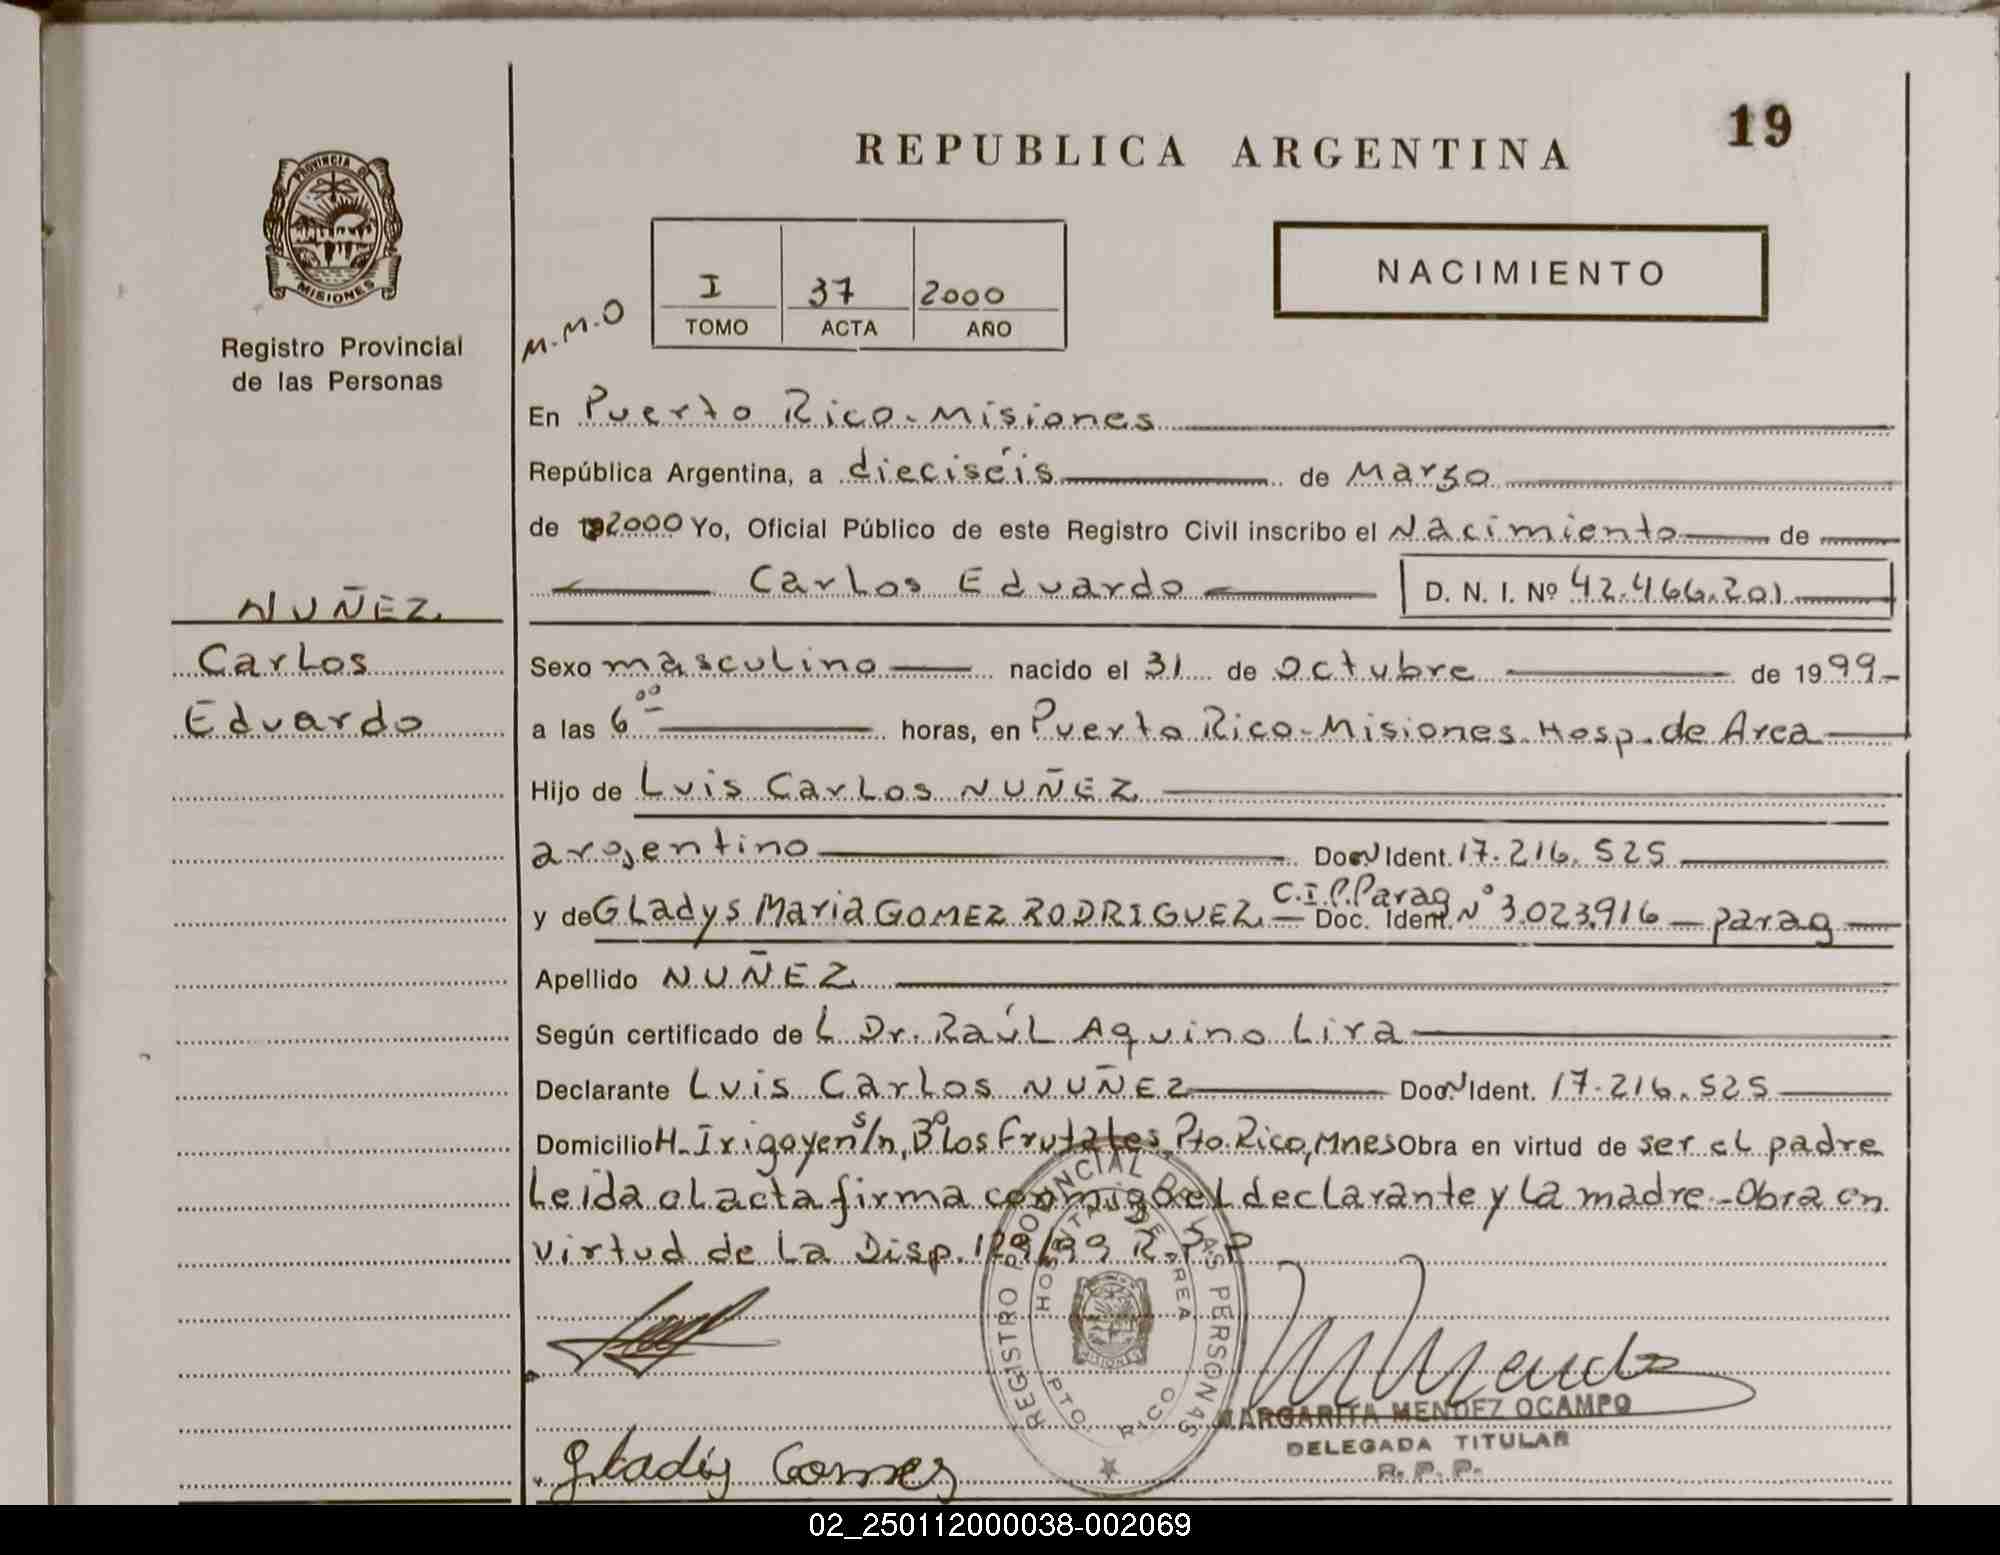 REPUBLICA ARGENTINA
19
PROVINCIA DE
MISIONES
Registro Provincial
de las Personas
NACIMIENTO
M.M.O
I 37 2000
TOMO ACTA AÑO
En Puerto Rico-Misiones
República Argentina, a dieciséis de Marzo
de 192000 Yo, Oficial Público de este Registro Civil inscribo el Nacimiento de
Carlos Eduardo D. N. I. Nº 42.466.201
NUÑEZ
Carlos
Eduardo
Sexo masculino nacido el 31 de Octubre de 1999-
a las 6 00 horas, en Puerto Rico-Misiones-Hosp. de Area
Hijo de Luis Carlos NUÑEZ
argentino Doc N Ident. 17.216.525
y de Gladys Maria GOMEZ RODRIGUEZ - C.I.P.Parag Doc. Ident. Nº 3.023.916 - parag
Apellido NUÑEZ
Según certificado de L Dr. Raúl Aquino Lira
Declarante Luis Carlos NUÑEZ Doc N Ident. 17.216.525
Domicilio H. Irigoyen s/n, Bº Los Frutales, Pto. Rico, Mnes Obra en virtud de ser el padre
Leida el acta firma conmigo el declarante y la madre.-Obra en
virtud de la Disp. 129/99 R.P.P
REGISTRO PROVINCIAL DE LAS PERSONAS
HOSPITAL DE AREA
MISIONES
PTO. RICO
M Mendez
MARGARITA MENDEZ OCAMPO
DELEGADA TITULAR
R. P. P.
Gladis Gomez
02_250112000038-002069